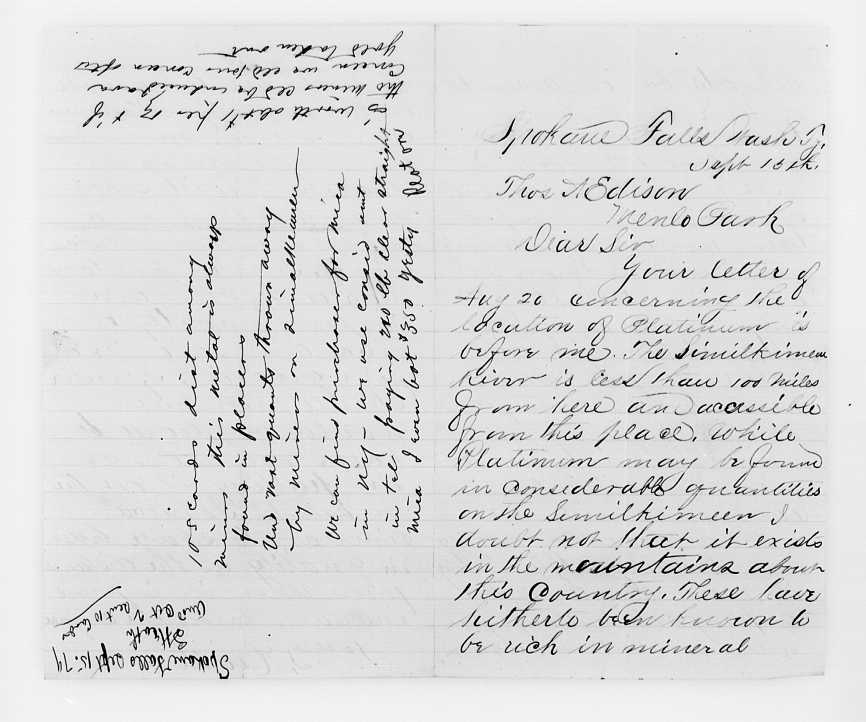 Spokane Falls Wash Ty.
Sept 15th.
Thos A Edison
Menlo Park
Dear Sir
Your letter of
Aug 20 concerning the
location of Platinum is
before me. The Similkimeen
River is less than 100 miles
from here and accessible
from this place. While
Platinum may be found
in considerable quantities
on the Similkimeen I
doubt not that it exists
in the mountains about
this Country. These have
hitherto been known to
be rich in mineral
10-5 cards dist among
mines this metal is always
found in placers
und vast quants thrown away
by miners on similkeameen
We can find purchaser for mica
in NY - we use consid amt
in tel paying 200 lb clear straight
mica I even bot $350 yesty
is worth abt $1 per oz & if
the miners cld be induced to save
concern we cld
gold taken out
Spokane Falls Sept 15. 79
Heath
Ansd Oct 2 sent 10 cards